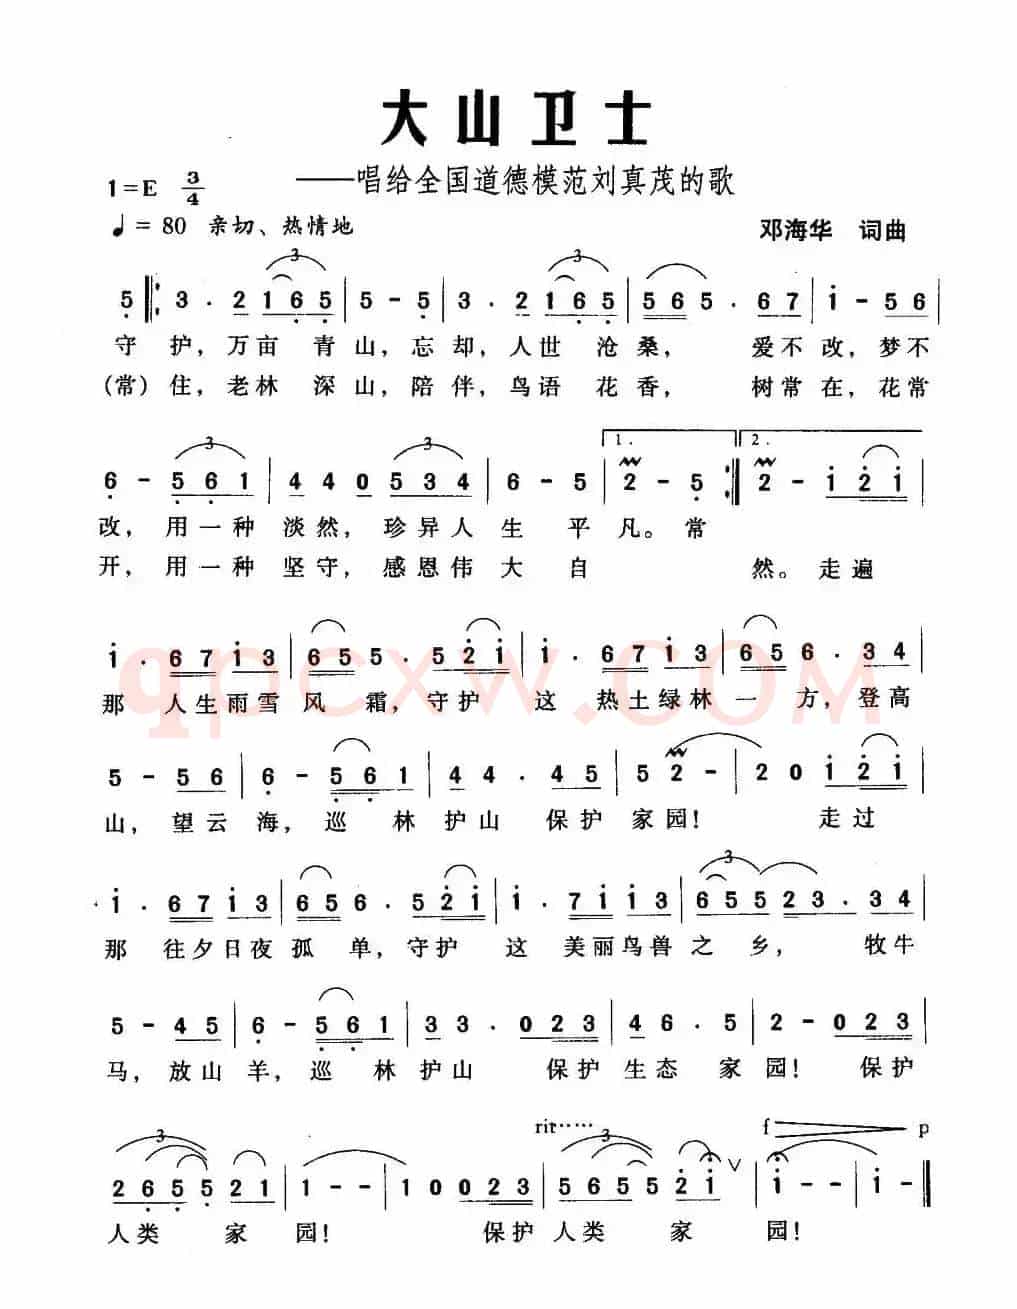 大山卫士
——唱给全国道德模范刘真茂的歌
1=E 3/4
♩= 80 亲切、热情地
邓海华 词曲
3 3
5 ‖: 3 . 2 1 6 5 | 5 - 5 | 3 . 2 1 6 5 | 5 6 5 . 6 7 | i - 5 6 |
守 护, 万亩 青山, 忘却, 人世 沧桑, 爱不改, 梦不
(常) 住, 老林 深山, 陪伴, 鸟语 花香, 树常在, 花常
3 3 1. 2.
6 - 5 6 1 | 4 4 0 5 3 4 | 6 - 5 | 2 - 5 :‖ 2 - i 2 i |
改, 用一种 淡然, 珍异人生 平凡。常
开, 用一种 坚守, 感恩伟大自 然。走遍
i . 6 7 i 3 | 6 5 5 . 5 2 i | i . 6 7 i 3 | 6 5 6 . 3 4 |
那 人生雨雪 风 霜, 守护 这 热土绿林 一 方, 登高
qpcxw.com
5 - 5 6 | 6 - 5 6 1 | 4 4 . 4 5 | 5 2 - | 2 0 i 2 i |
山, 望云海, 巡林护山 保护家园! 走过
3
i . 6 7 i 3 | 6 5 6 . 5 2 i | i . 7 i i 3 | 6 5 5 2 3 . 3 4 |
那 往夕日夜 孤 单, 守护 这 美丽鸟兽 之 乡, 牧牛
5 - 4 5 | 6 - 5 6 1 | 3 3 . 0 2 3 | 4 6 . 5 | 2 - 0 2 3 |
马, 放山羊, 巡林护山 保护生态 家园! 保护
3 rit······ 3 f p
2 6 5 5 2 1 | 1 - - | 1 0 0 0 2 3 | 5 6 5 5 2 i ∨ | i - - | i - ‖
人类 家 园! 保护人类 家 园!